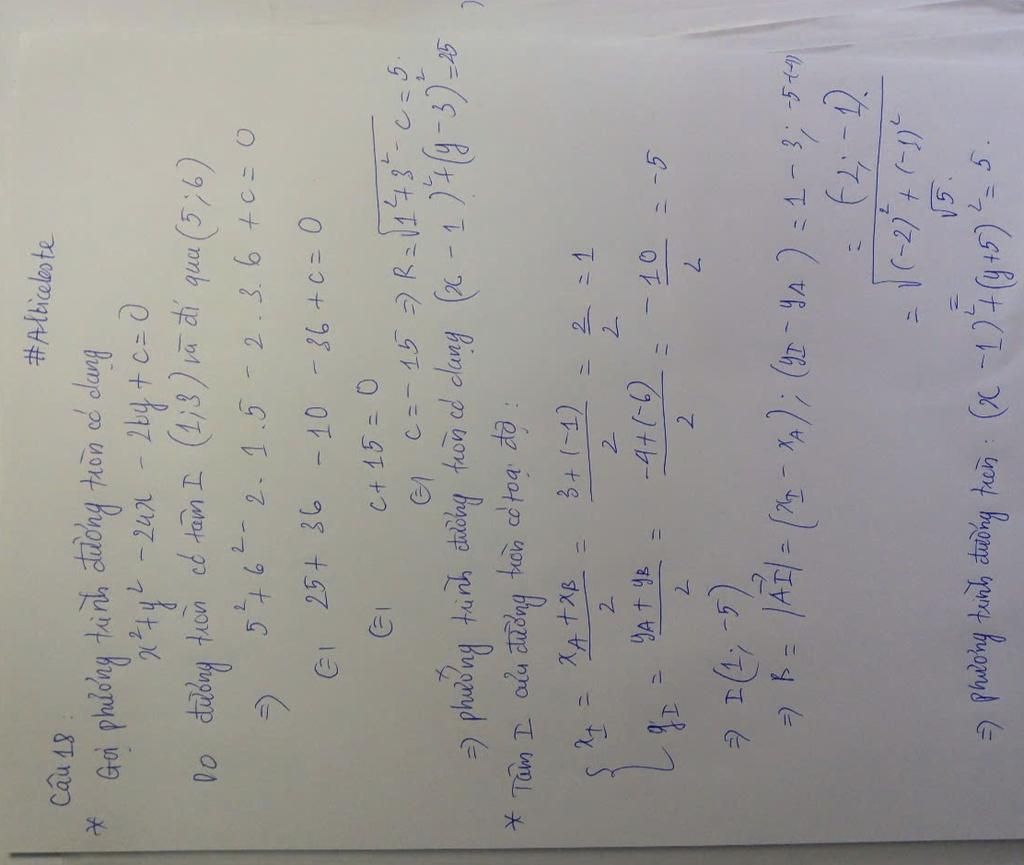 #Albiceleste
Câu 18:
* Gọi phương trình đường tròn có dạng
x² + y² - 2ax - 2by + c = 0
Do đường tròn có tâm I (1;3) và đi qua (5;6)
=> 5² + 6² - 2.1.5 - 2.3.6 + c = 0
(=) 25 + 36 - 10 - 36 + c = 0
(=) c + 15 = 0
(=) c = -15 => R = √(1² + 3² - c) = 5.
=> phương trình đường tròn có dạng (x - 1)² + (y - 3)² = 25
* Tâm I của đường tròn có toạ độ:
{ x_I = (x_A + x_B)/2 = (3 + (-1))/2 = 2/2 = 1
y_I = (y_A + y_B)/2 = (-4 + (-6))/2 = -10/2 = -5
=> I(1; -5)
=> R = |AI→| = (x_I - x_A); (y_I - y_A) = 1 - 3; -5-(-4)
= (-2; -1).
= √((-2)² + (-1)²)
= √5.
=> phương trình đường tròn: (x - 1)² + (y + 5)² = 5.